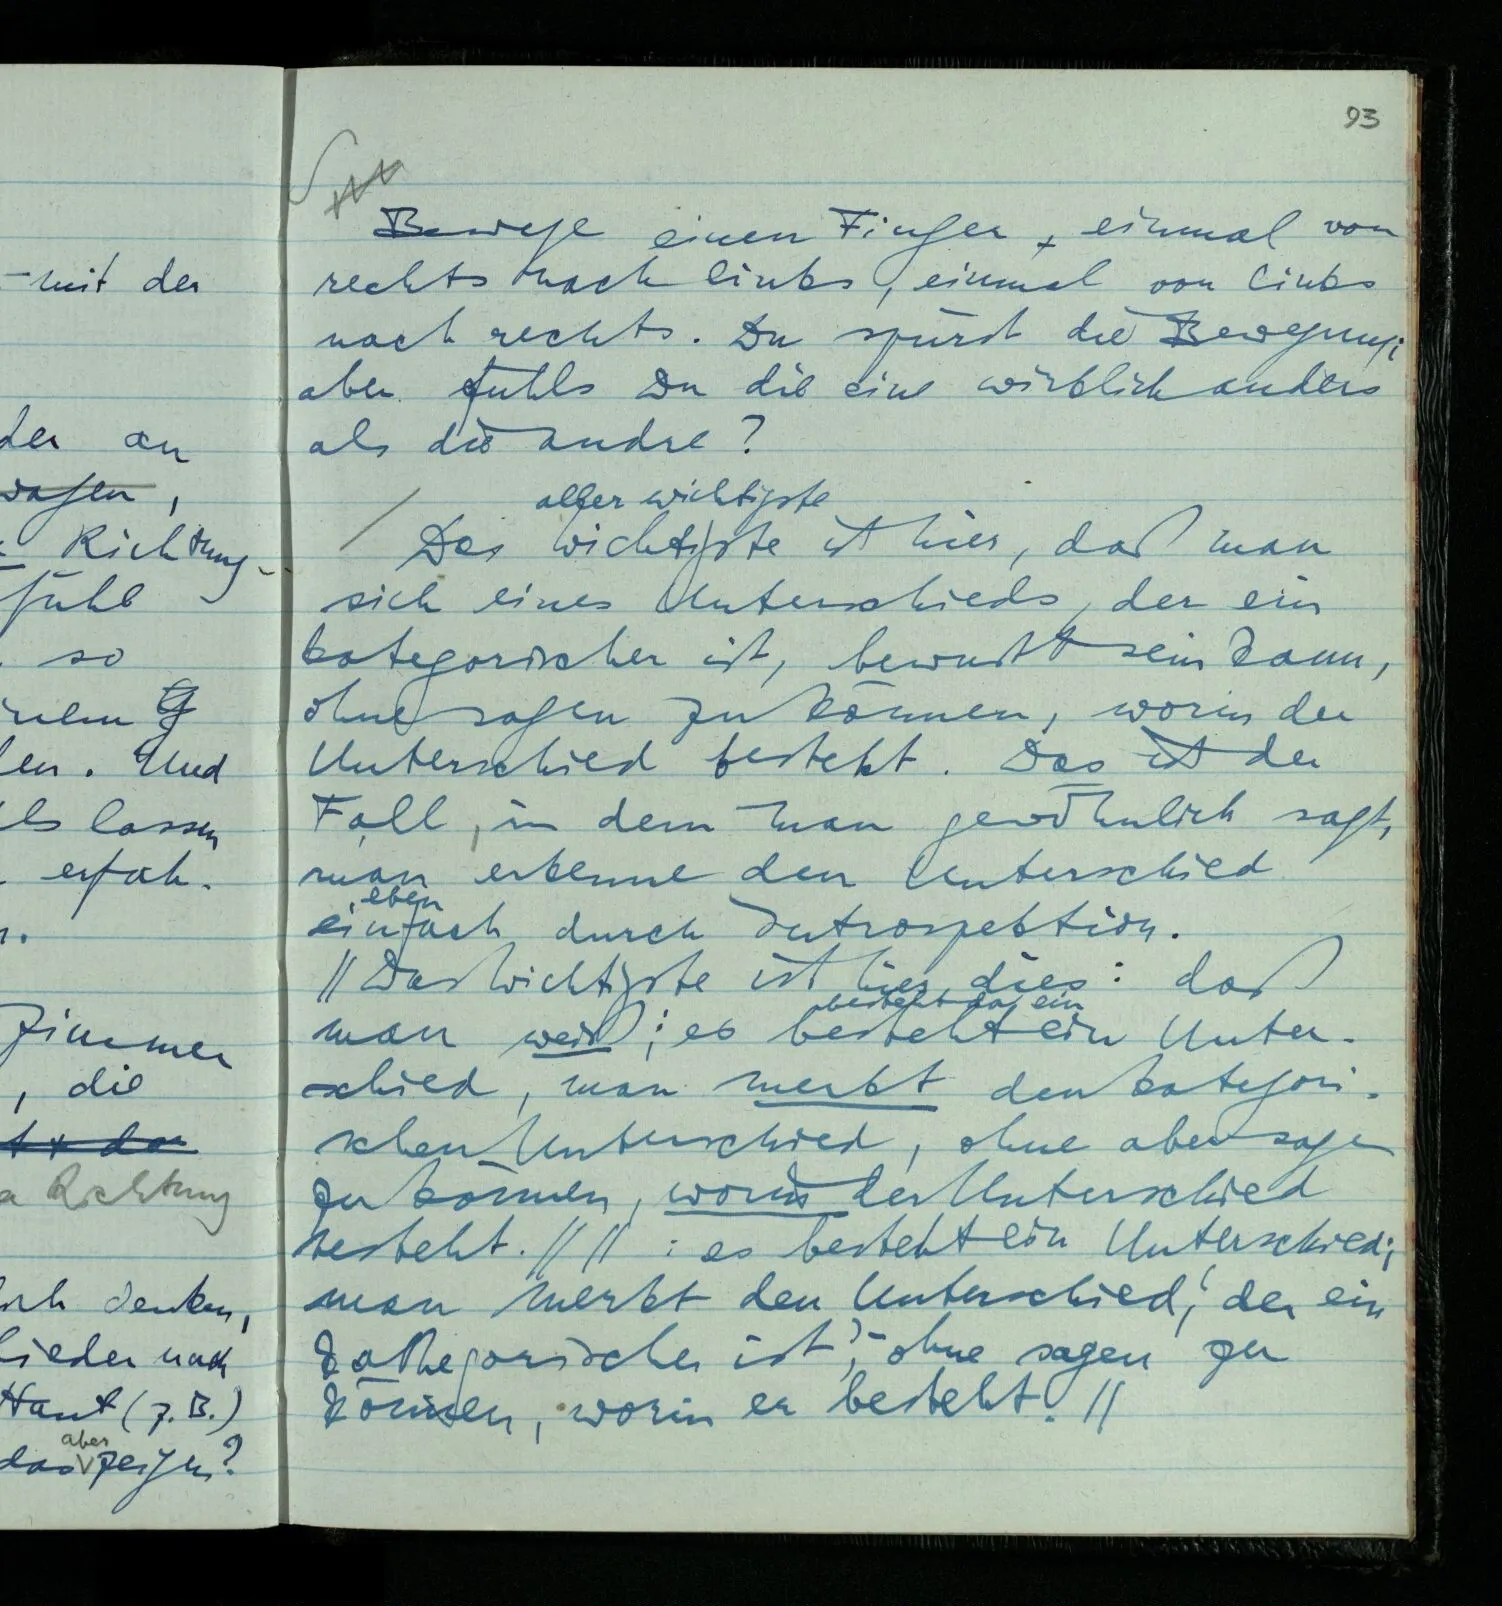 93
Bewege einen Finger, einmal von
rechts nach links, einmal von links
nach rechts. Du spürst die Bewegung;
aber fühls Du die eine wirklich anders
als die andre?
allerwichtigste
Das wichtigste ist hier, daß man
sich eines Unterschieds, der ein
kategorischer ist, bewußt sein kann,
ohne sagen zu können, worin der
Unterschied besteht. Das ist der
Fall, in dem man gewöhnlich sagt,
man erkenne den Unterschied
eben
einfach durch Introspektion.
// Das Wichtigste ist hier dies: daß
besteht da ein
man weiß; es besteht ein Unter-
schied, man merkt den kategori-
schen Unterschied, ohne aber sage
zu können, worin der Unterschied
besteht. // // : es besteht ein Unterschied;
man merkt den Unterschied, der ein
kathegorischer ist, – ohne sagen zu
können, worin er besteht. //
– mit der
der an
wagen,
Richtung-
fühl
so
len. Und
lassen
erfah-
Zimmer
, die
Richtung
denken,
lieder nach
Haut (z.B.)
aber
das zeigen?